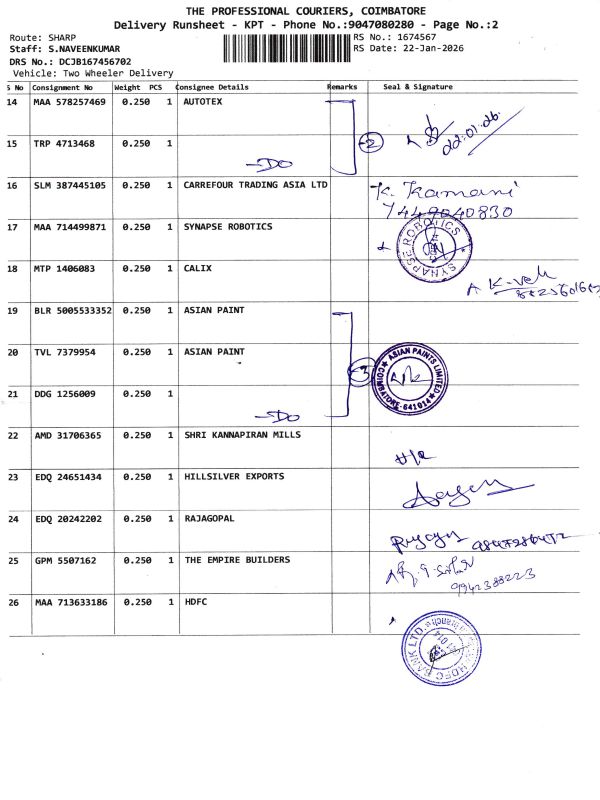 THE PROFESSIONAL COURIERS, COIMBATORE
Delivery Runsheet - KPT - Phone No.:9047080280 - Page No.:2
Route: SHARP
RS No.: 1674567
Staff: S.NAVEENKUMAR
RS Date: 22-Jan-2026
DRS No.: DCJB167456702
Vehicle: Two Wheeler Delivery
S No Consignment No Weight PCS Consignee Details Remarks Seal & Signature
14 MAA 578257469 0.250 1 AUTOTEX
22.01.26
15 TRP 4713468 0.250 1
2
DO
16 SLM 387445105 0.250 1 CARREFOUR TRADING ASIA LTD K. Kamani
7449040830
17 MAA 714499871 0.250 1 SYNAPSE ROBOTICS
SYNAPSE ROBOTICS
18 MTP 1406083 0.250 1 CALIX
19 BLR 5005533352 0.250 1 ASIAN PAINT
20 TVL 7379954 0.250 1 ASIAN PAINT
3
ASIAN PAINTS LIMITED
COIMBATORE-641014
21 DDG 1256009 0.250 1
DO
22 AMD 31706365 0.250 1 SHRI KANNAPIRAN MILLS
23 EDQ 24651434 0.250 1 HILLSILVER EXPORTS
24 EDQ 20242202 0.250 1 RAJAGOPAL
25 GPM 5507162 0.250 1 THE EMPIRE BUILDERS
9942388223
26 MAA 713633186 0.250 1 HDFC
HDFC BANK LTD.